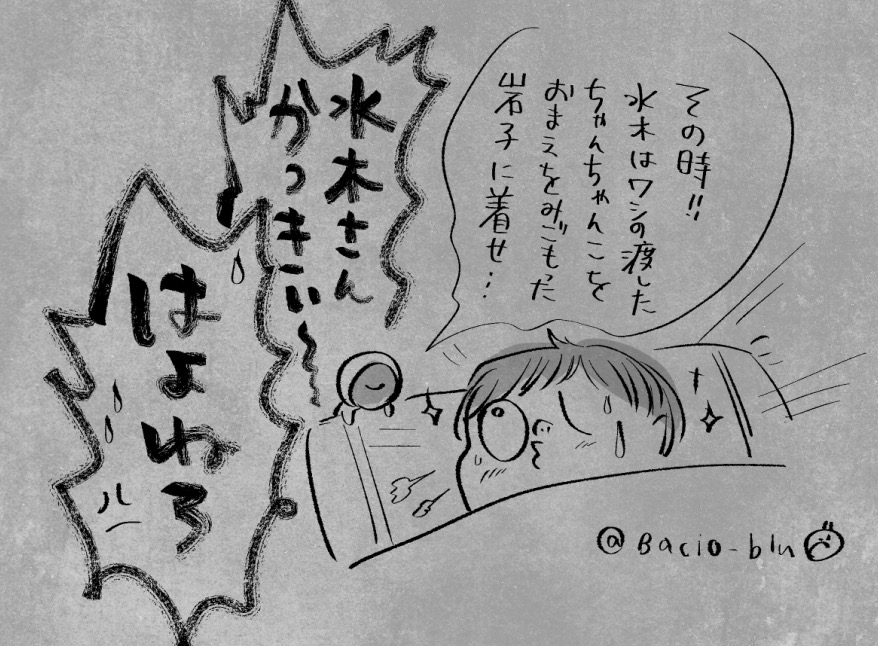 その時!!
水木はワシの渡した
ちゃんちゃんこを
おまえをみごもった
岩子に着せ…
水木さん
かっきぃ〜
はよねろ
@Bacio-blu